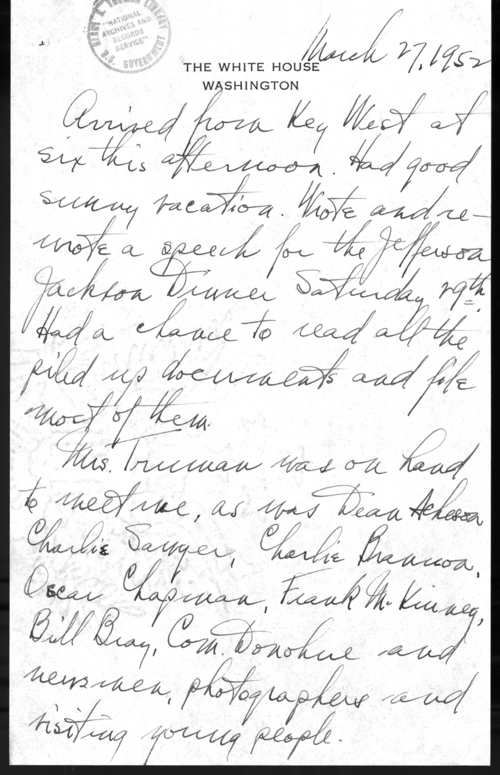 HARRY S. TRUMAN LIBRARY
"NATIONAL
ARCHIVES AND
RECORDS
SERVICE"
U.S. GOVERNMENT
March 27, 1952
THE WHITE HOUSE
WASHINGTON
Arrived from Key West at
six this afternoon. Had good
sunny vacation. Wrote and re-
wrote a speech for the Jefferson
Jackson Dinner Saturday 29th.
Had a chance to read all the
piled up documents and file
most of them.
Mrs. Truman was on hand
to meet me, as was Dean Acheson
Charlie Sawyer, Charlie Brannon,
Oscar Chapman, Frank McKinney,
Bill Bray, Com. Donohue and
newsmen, photographers and
visiting young people.